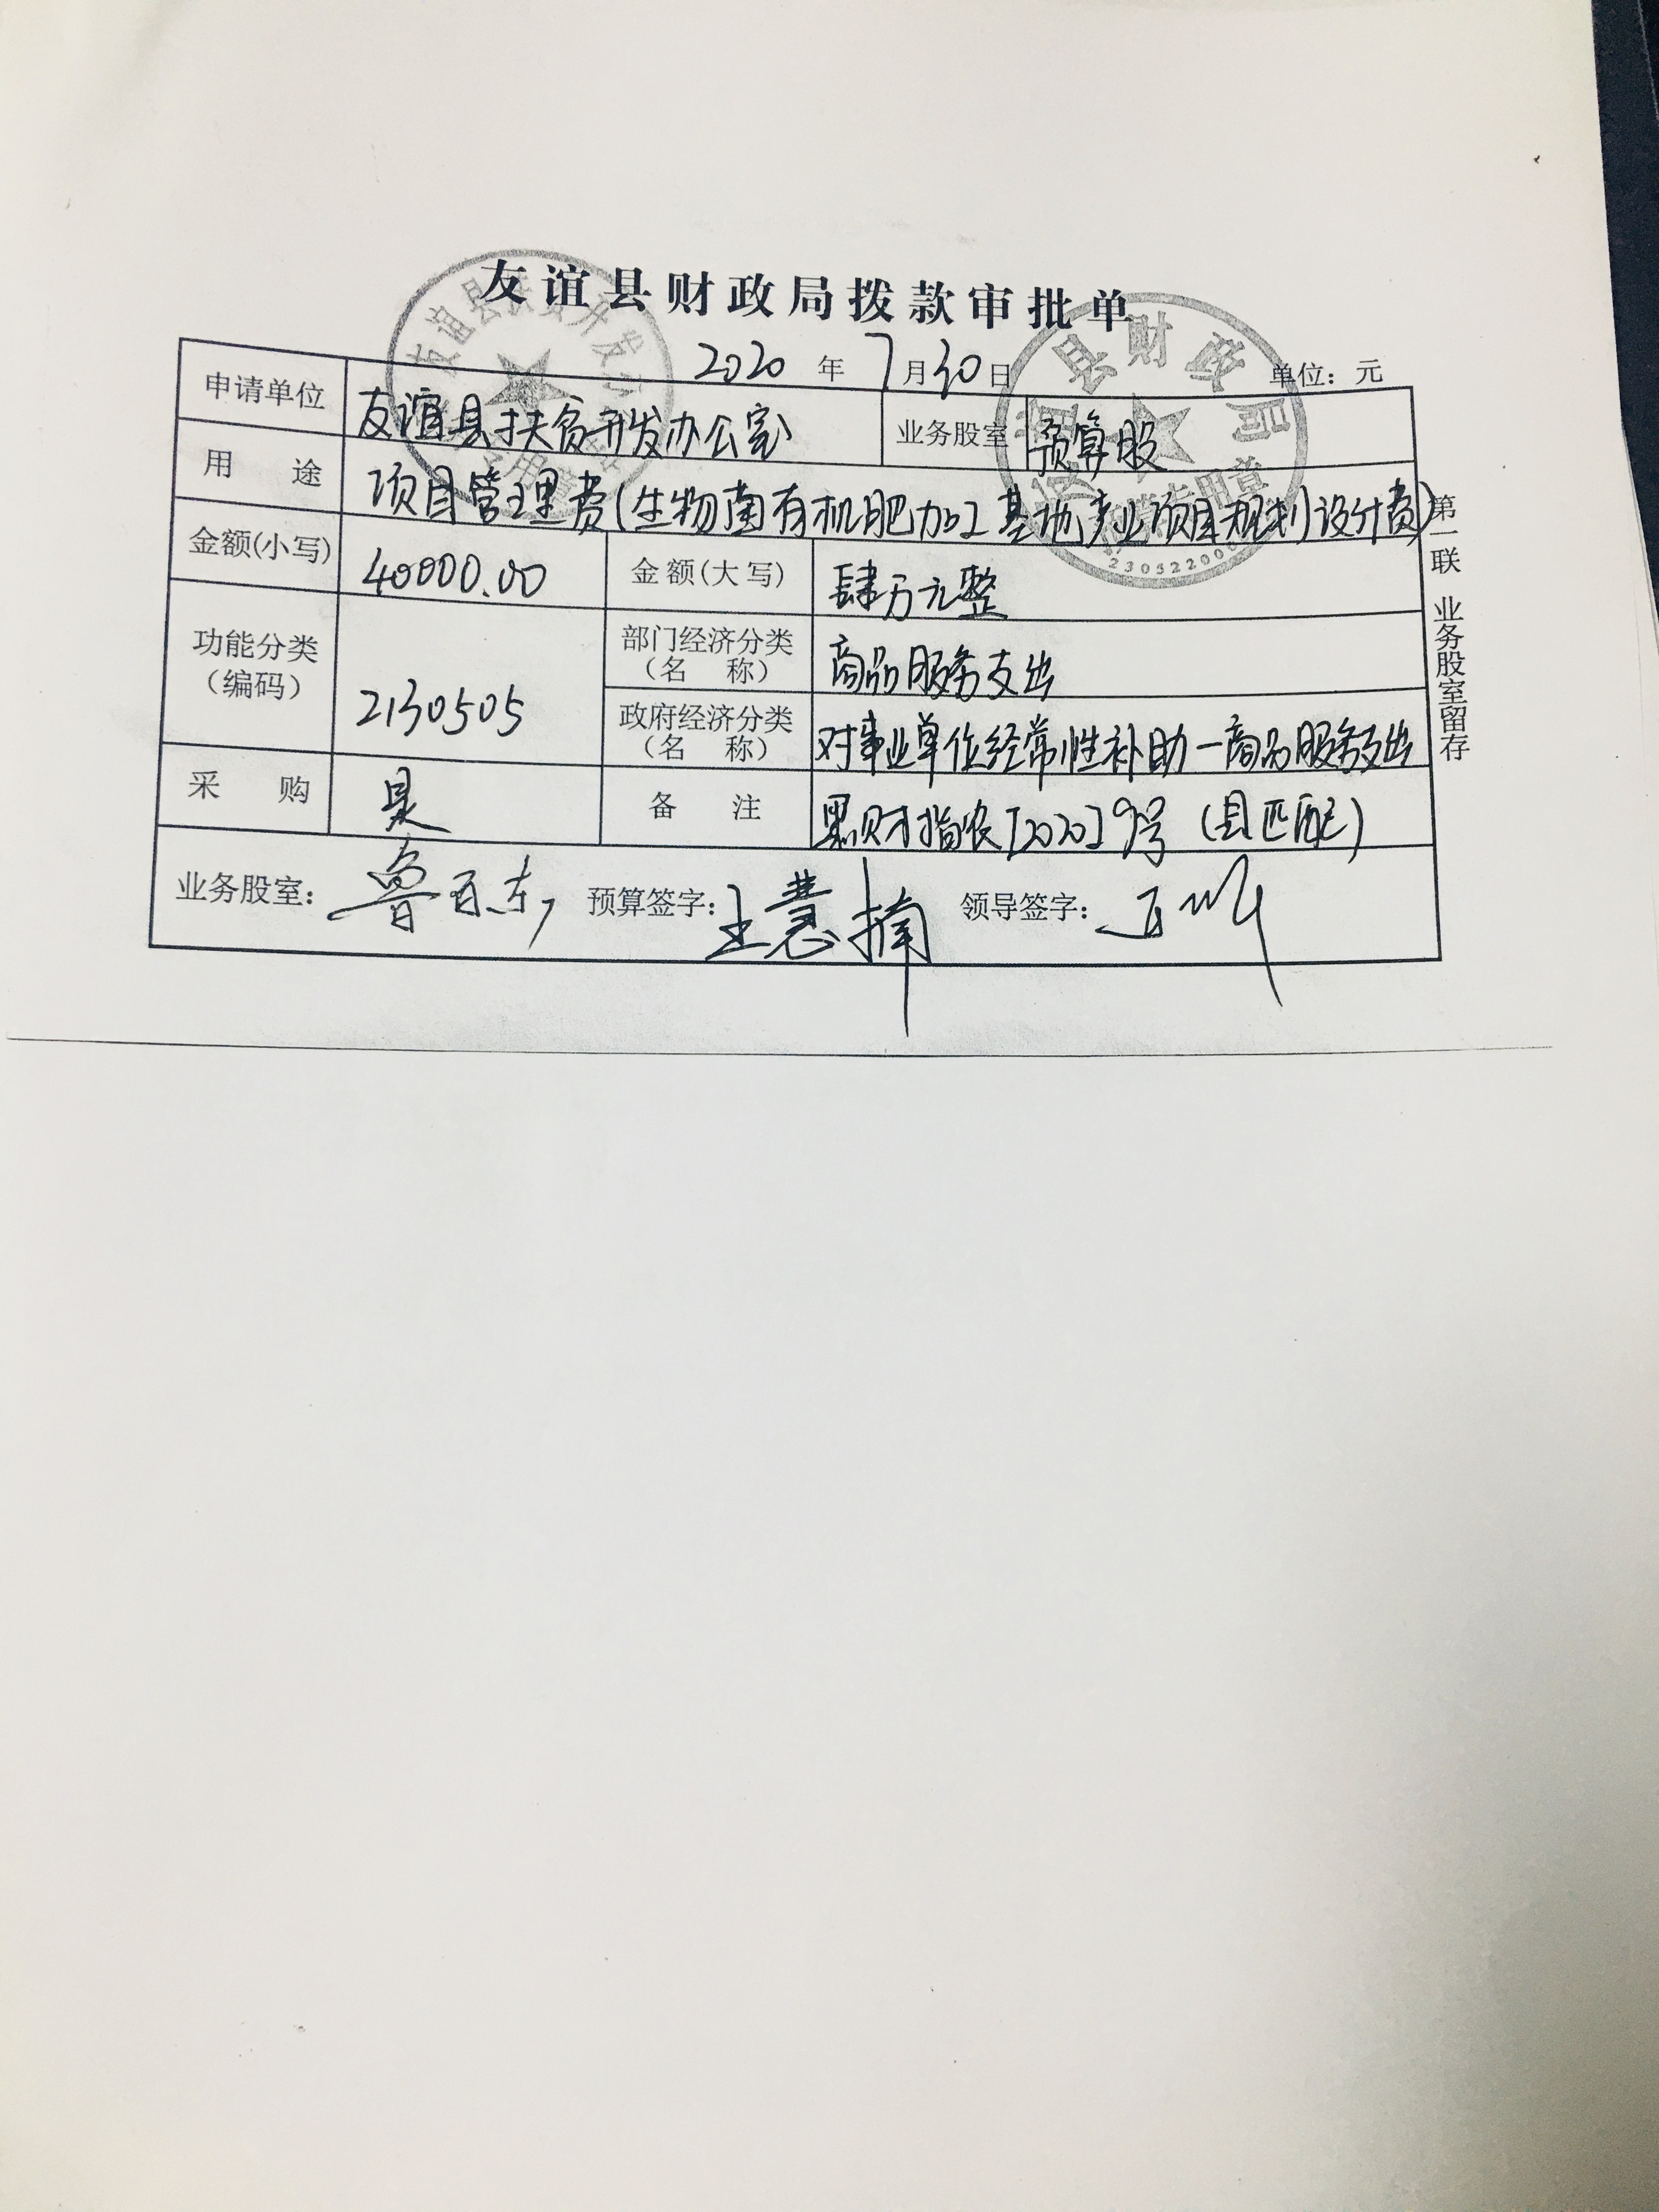 友谊县财政局拨款审批单
2020 年 7 月 30 日 单位：元
申请单位 友谊县扶贫开发办公室 业务股室 预算股
用 途 项目管理费(生物菌有机肥加工基地产业项目规划设计费)
金额(小写) 40000.00 金额(大写) 肆万元整
功能分类（编码） 2130505 部门经济分类（名 称） 商品服务支出
政府经济分类（名 称） 对事业单位经常性补助—商品服务支出
采 购 是 备 注 黑财指农[2020]9号（县匹配）
业务股室： 预算签字：王慧楠 领导签字：
第一联 业务股室留存
友谊县扶贫开发办
专用章
友谊县财政局
专用章
2305220